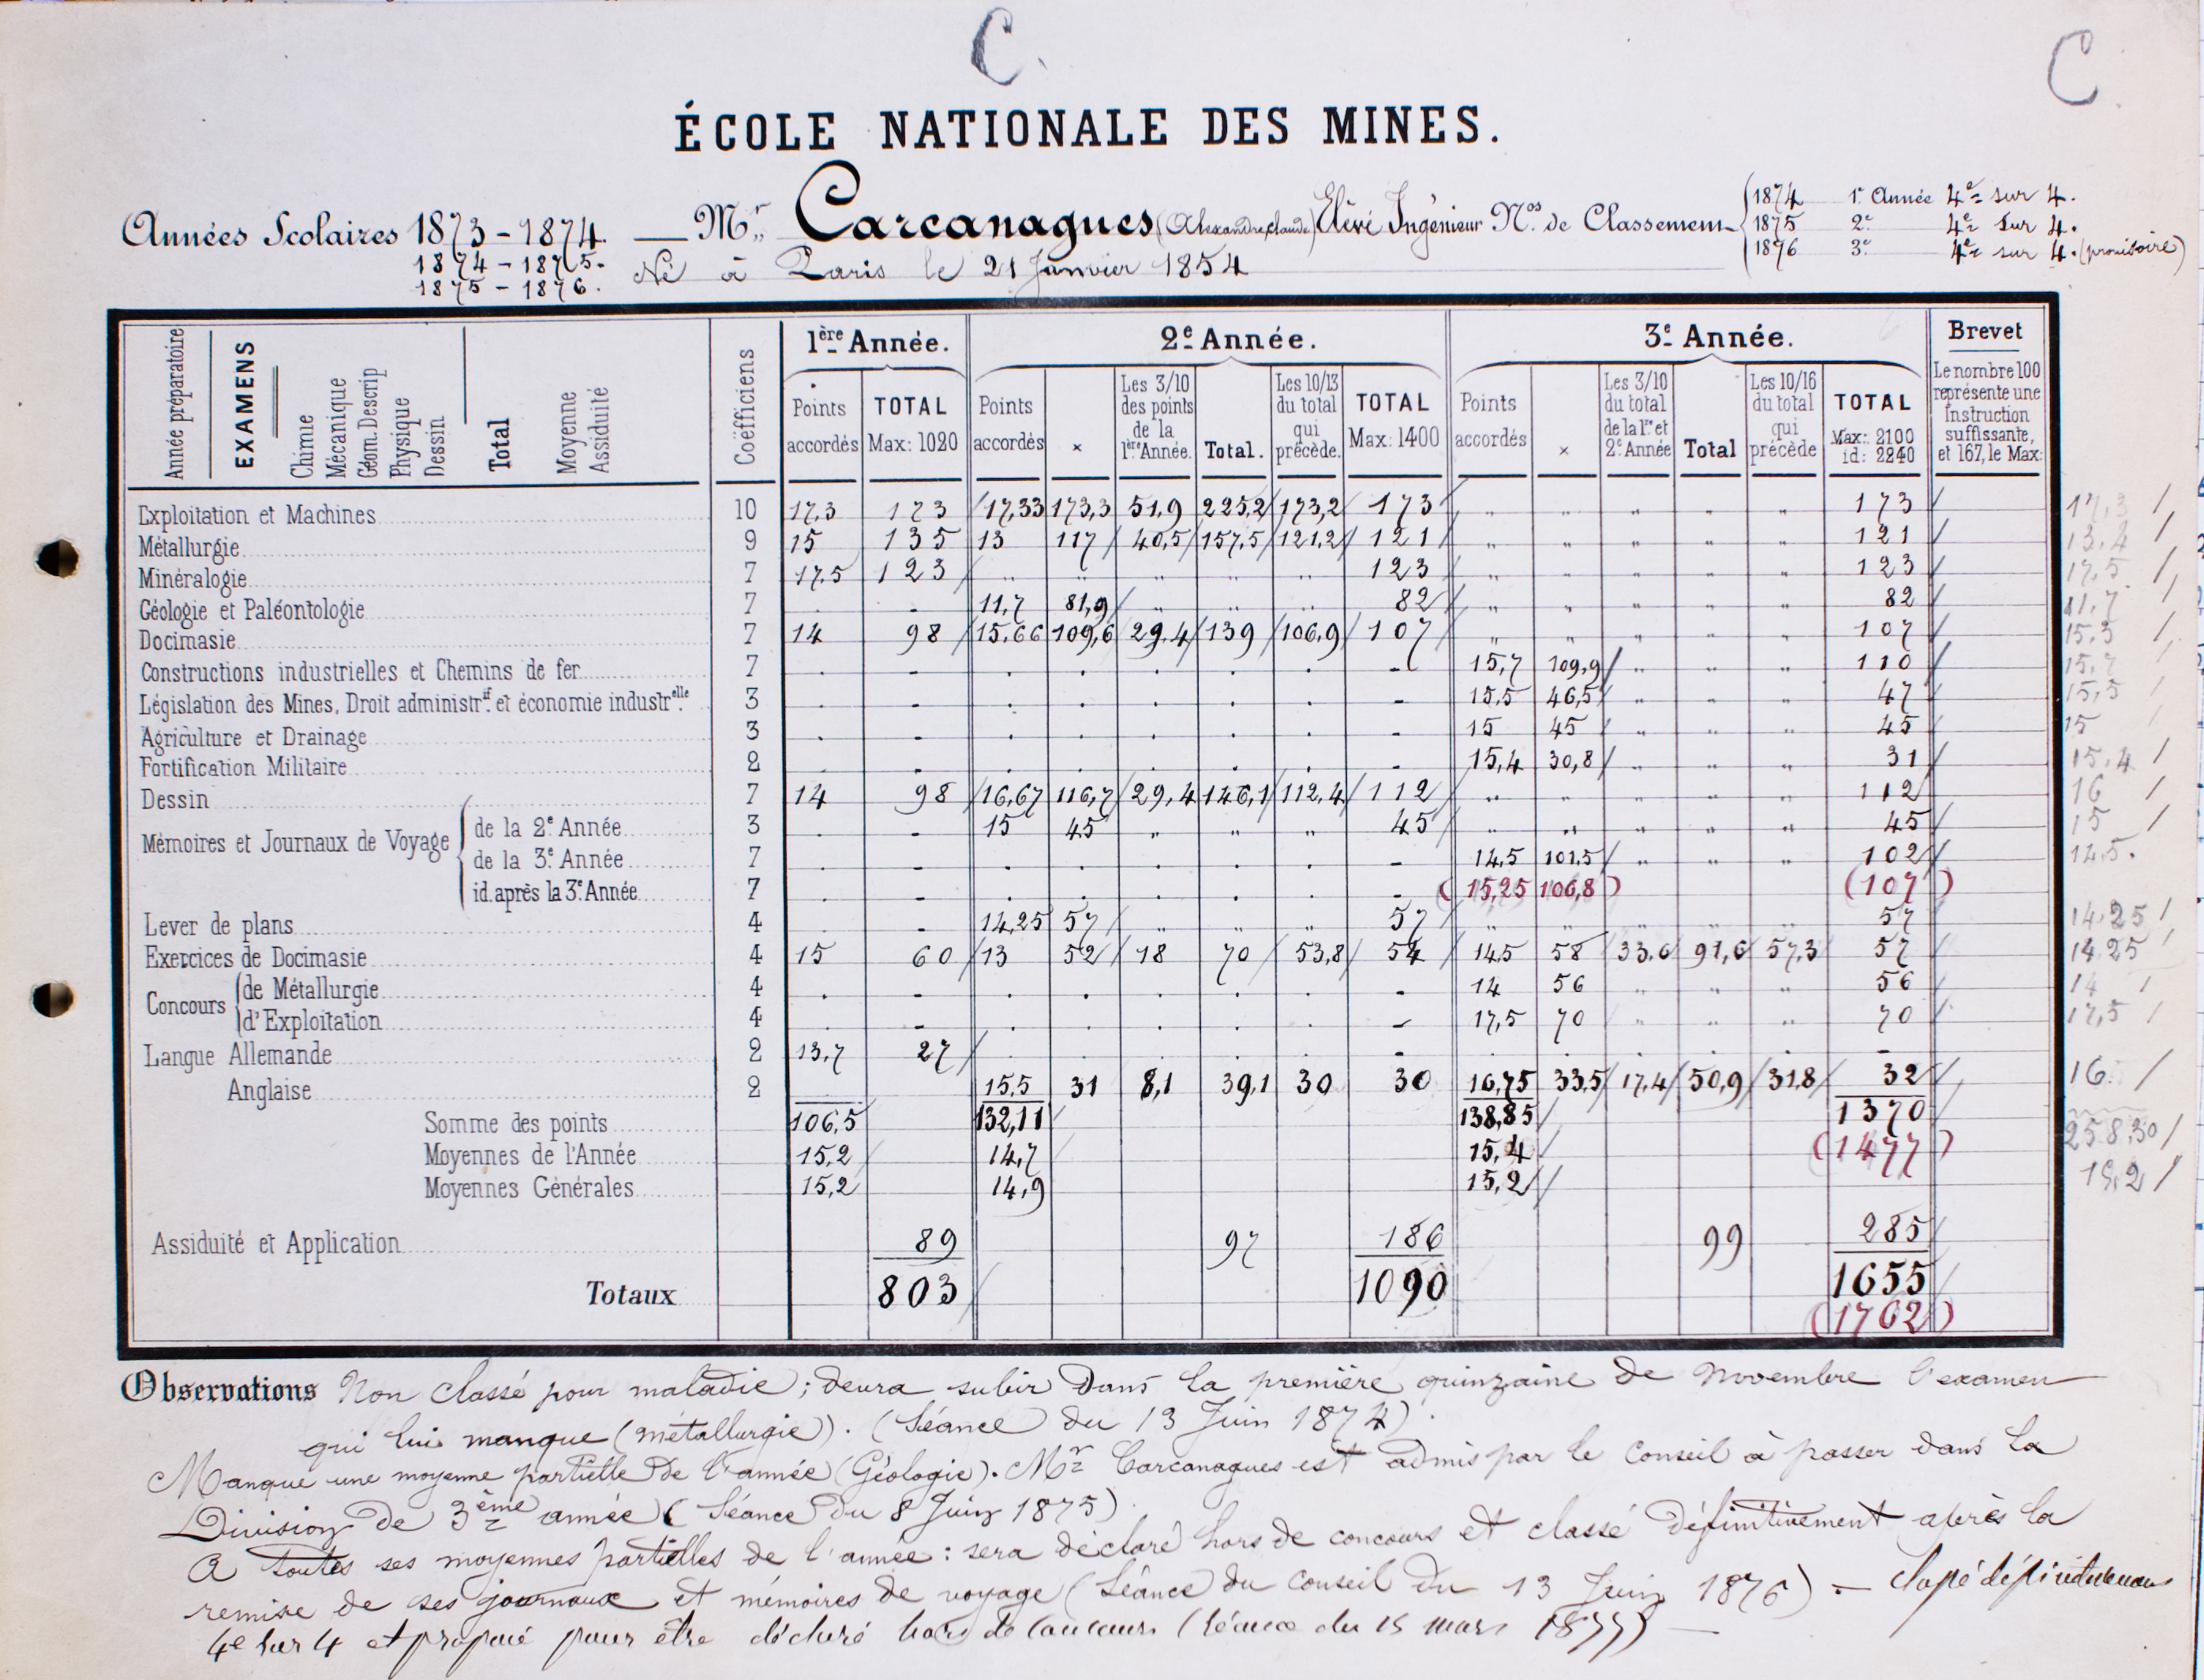 C.
C
ÉCOLE NATIONALE DES MINES.
Années Scolaires 1873-1874. — Mr. Carcanagues (Alexandre, claude) Elève Ingénieur Nos. de Classement
1874-1875.
1875-1876.
Né à Paris le 21 Janvier 1854
1874 1e Année 4e sur 4.
1875 2e 4e sur 4.
1876 3e 4e sur 4. (provisoire)
Année préparatoire EXAMENS Chimie Mécanique Géom. Descrip Physique Dessin Total Moyenne Assiduité
Coëfficiens
1ère Année. 2e Année. 3e Année. Brevet
Points accordés TOTAL Max: 1020
Points accordés × Les 3/10 des points de la 1ère Année. Total. Les 10/13 du total qui précède. TOTAL Max: 1400
Points accordés × Les 3/10 du total de la 1re et 2e Année Total Les 10/16 du total qui précède TOTAL Max: 2100 id: 2240
Le nombre 100 représente une Instruction suffissante, et 167, le Max:
Exploitation et Machines 10 17,3 173 17,33 173,3 51,9 225,2 173,2 173 " " " " " 173 17,3
Métallurgie 9 15 135 13 117 40,5 157,5 121,2 121 " " " " " 121 13,4
Minéralogie 7 17,5 123 " " " " " 123 " " " " " 123 17,5
Géologie et Paléontologie 7 . - 11,7 81,9 " " " 82 " " " " " 82 11,7
Docimasie 7 14 98 15,66 109,6 29,4 139 106,9 107 " " " " " 107 15,3
Constructions industrielles et Chemins de fer 7 . - . . . . . - 15,7 109,9 " " " 110 15,7
Législation des Mines, Droit administrif. et économie industrelle. 3 . - . . . . . - 15,5 46,5 " " " 47 15,5
Agriculture et Drainage 3 . - . . . . . - 15 45 " " " 45 15
Fortification Militaire 2 . - . . . . . - 15,4 30,8 " " " 31 15,4
Dessin 7 14 98 16,67 116,7 29,4 146,1 112,4 112 " " " " " 112 16
Mémoires et Journaux de Voyage de la 2e Année 3 . - 15 45 " " " 45 " " " " " 45 15
de la 3e Année 7 . - . . . . . - 14,5 101,5 " " " 102 14,5.
id. après la 3e Année 7 . - . . . . . - (15,25 106,8) (107)
Lever de plans 4 . - 14,25 57 " " " 57 " " " " " 57 14,25
Exercices de Docimasie 4 15 60 13 52 18 70 53,8 54 14,5 58 33,6 91,6 57,3 57 14,25
Concours de Métallurgie 4 . - . . . . . - 14 56 " " " 56 14
d'Exploitation 4 . - . . . . . - 17,5 70 " " " 70 17,5
Langue Allemande 2 13,7 27 . . . . . - . . . . . -
Anglaise 2 15,5 31 8,1 39,1 30 30 16,75 33,5 17,4 50,9 31,8 32 16
Somme des points 106,5 132,11 138,85 1370 258,30
Moyennes de l'Année 15,2 14,7 15,4 (1477)
Moyennes Générales 15,2 14,9 15,2 15,2
Assiduité et Application 89 97 186 99 285
Totaux 803 1090 1655
(1762)
Observations Non classé pour maladie; devra subir dans la première quinzaine de Novembre l'examen
qui lui manque (métallurgie). (Séance du 13 Juin 1874).
Manque une moyenne partielle de l'année (Géologie). Mr Carcanagues est admis par le Conseil à passer dans la
Division de 3ème année (Séance du 8 Juin 1875)
A toutes ses moyennes partielles de l'année: sera déclaré hors de concours et classé définitivement après la
remise de ses journaux et mémoires de voyage (Séance du Conseil du 13 Juin 1876) — classé définitivement
4e sur 4 et proposé pour être déclaré hors de concours (Séance du 15 mars 1877) —